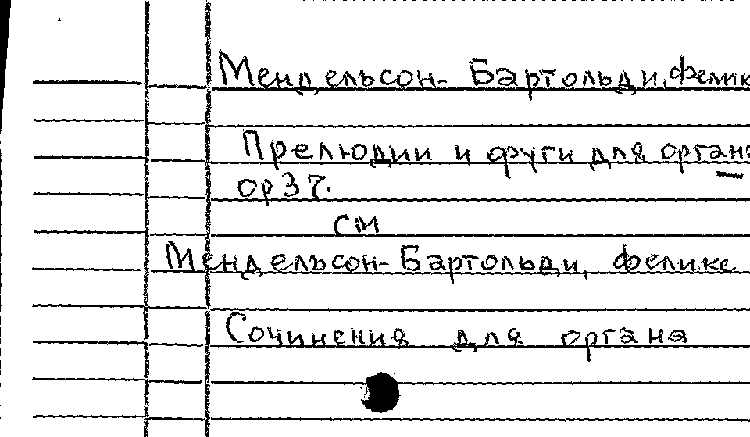 Мендельсон-Бартольди, Феликс
Прелюдии и фуги для органа
ор 37.
см
Мендельсон-Бартольди, Феликс
Сочинения для органа